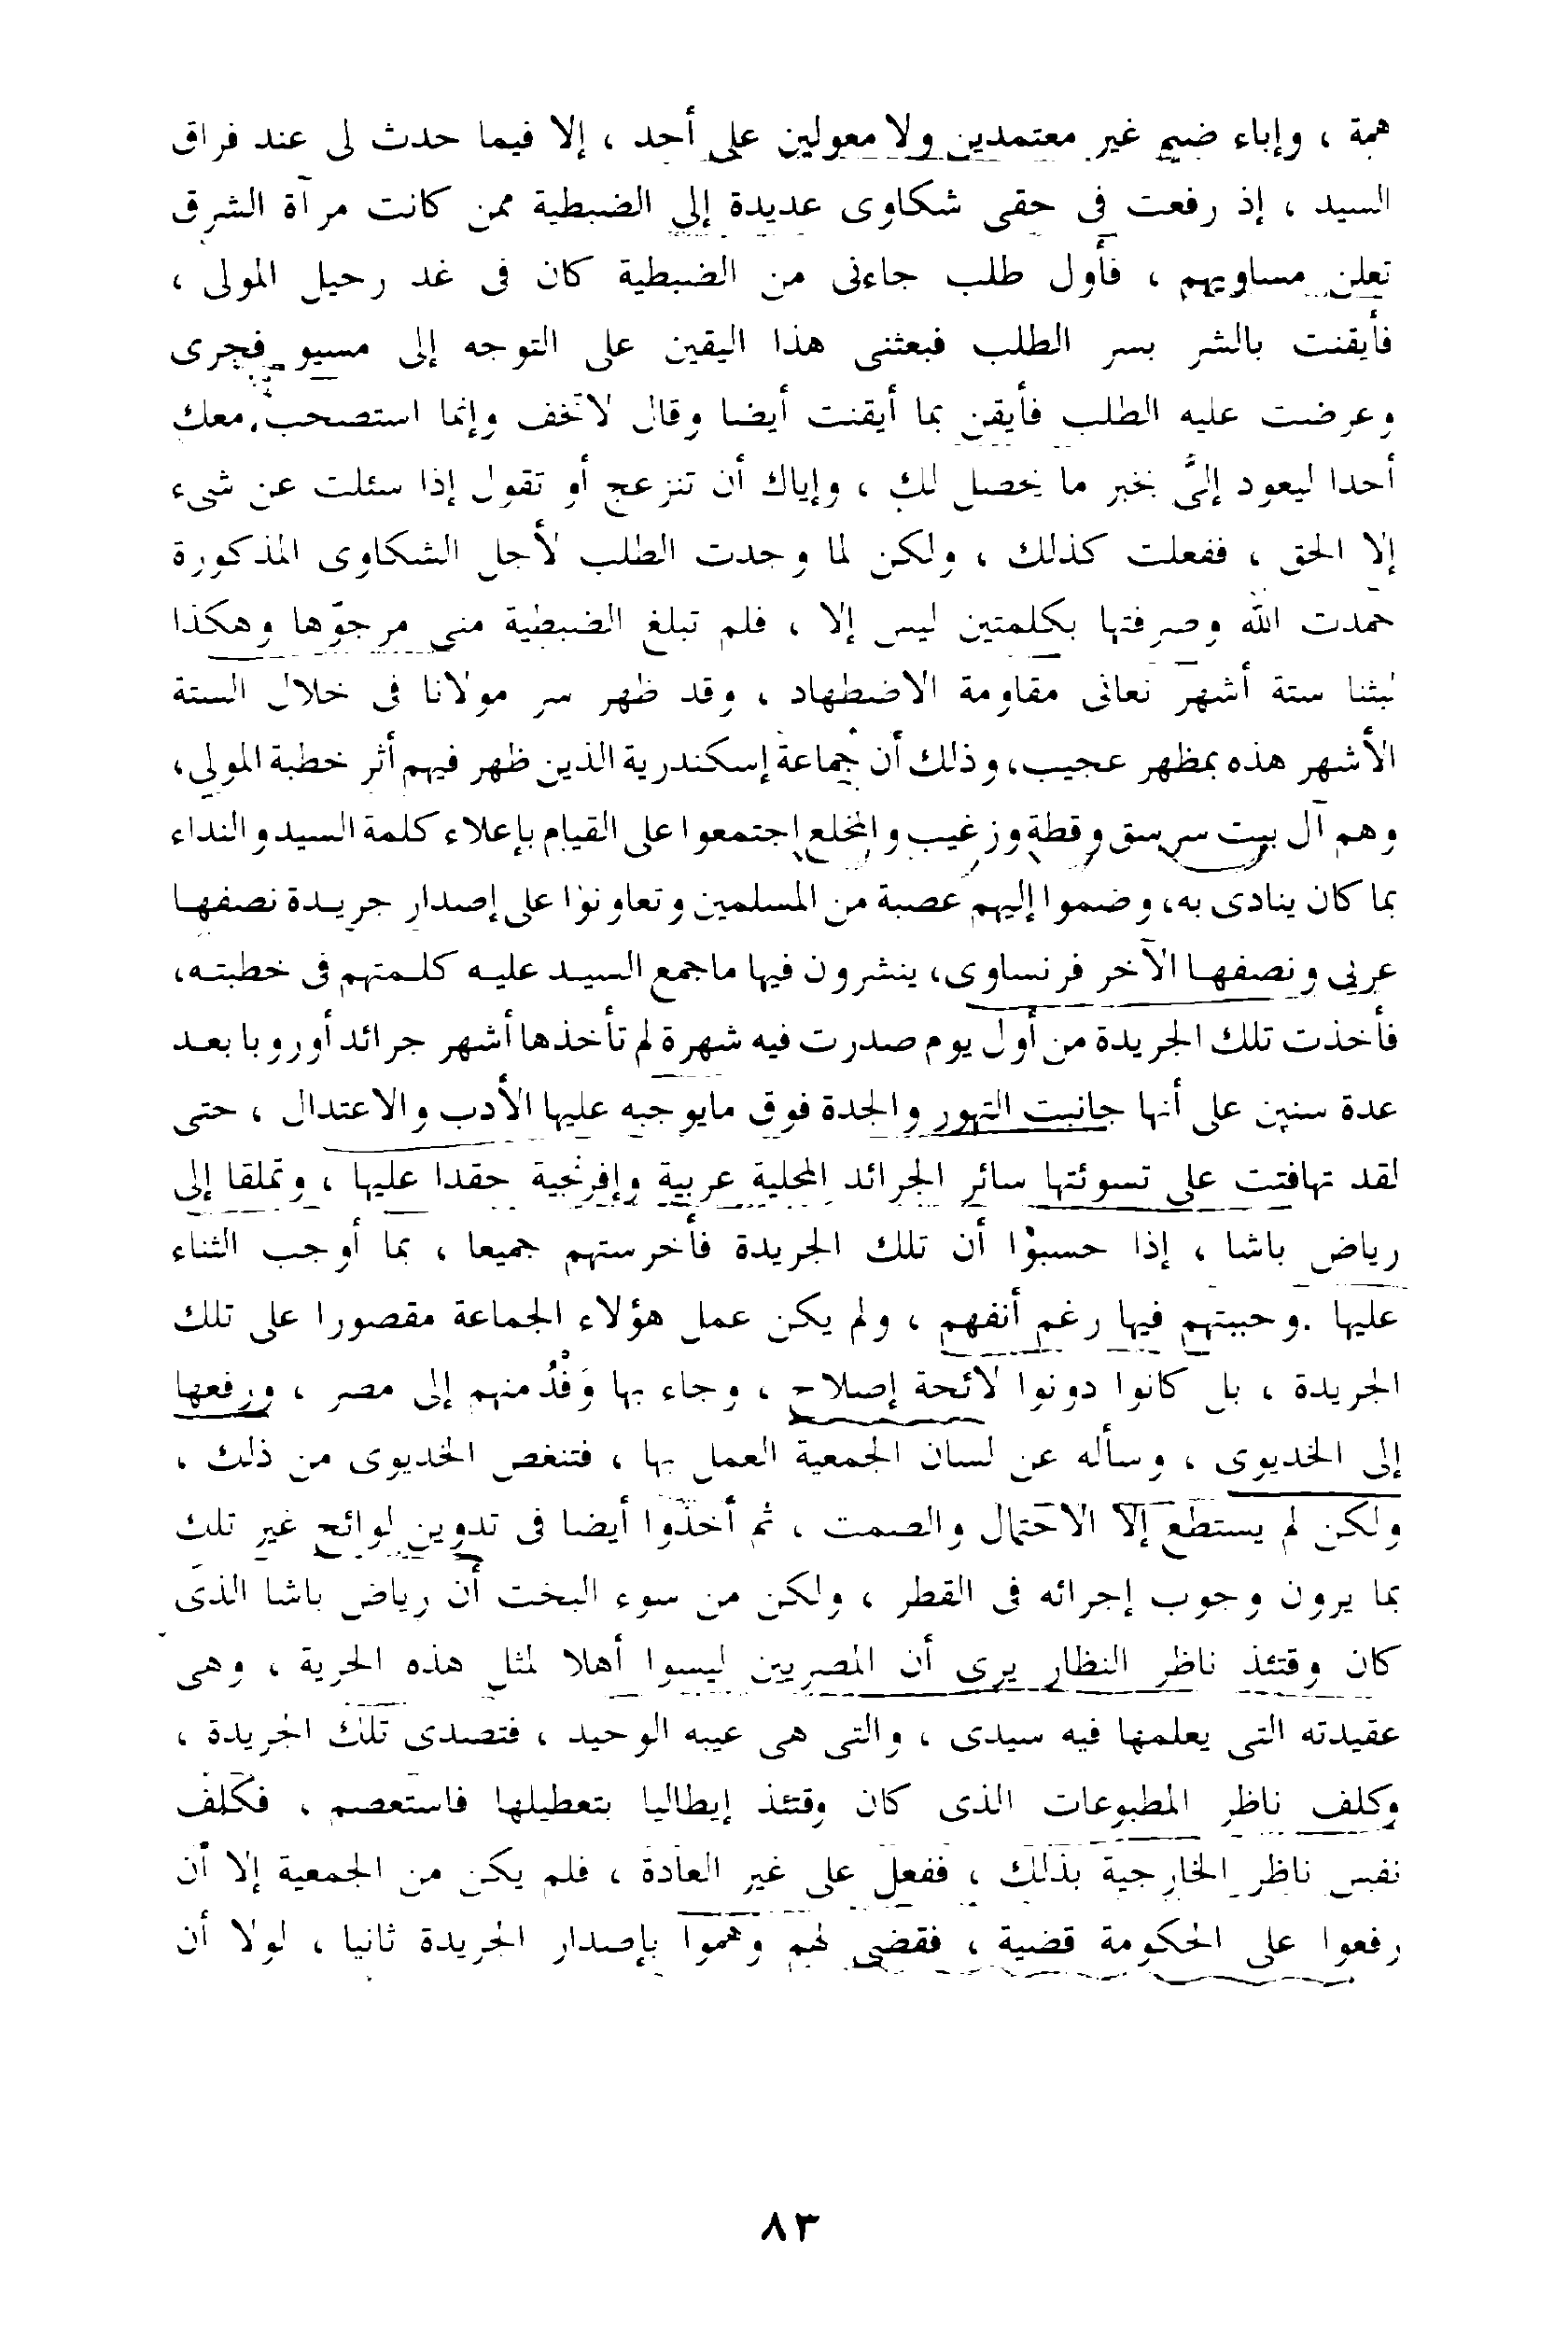 همة ، وإباء ضيم غير معتمدين ولا معولين على أحد ، إلا فيما حدث لى عند فراق
السيد ، إذ رفعت فى حقى شكاوى عديدة إلى الضبطية ممن كانت مرآة الشرق
تعلن مساويهم ، فأول طلب جاءنى من الضبطية كان فى غد رحيل المولى ،
فأيقنت بالشر بسر الطلب فبعثنى هذا اليقين على التوجه إلى مسيو فجرى
وعرضت عليه الطلب فأيقن بما أيقنت أيضا وقال لاتخف وإنما استصحب معك
أحدا ليعود إلىَّ بخبر ما يحصل لك ، وإياك أن تنزعج أو تقول إذا سئلت عن شىء
إلا الحق ، ففعلت كذلك ، ولكن لما وجدت الطلب لأجل الشكاوى المذكورة
حمدت الله وصرفتها بكلمتين ليس إلا ، فلم تبلغ الضبطية منى مرجوّها وهكذا
لبثنا ستة أشهر نعانى مقاومة الاضطهاد ، وقد ظهر سر مولانا فى خلال الستة
الأشهر هذه بمظهر عجيب، وذلك أن جماعة إسكندرية الذين ظهر فيهم أثر خطبة المولي،
وهم آل بيت سرسق وقطة وزغيب والمخلع اجتمعوا على القيام بإعلاء كلمة السيد والنداء
بما كان ينادى به، وضموا إليهم عصبة من المسلمين وتعاونوا على إصدار جريدة نصفها
عربى ونصفها الآخر فرنساوى، ينشرون فيها ماجمع السيد عليه كلمتهم فى خطبته،
فأخذت تلك الجريدة من أول يوم صدرت فيه شهرة لم تأخذها أشهر جرائد أوروبا بعد
عدة سنين على أنها جانبت التهور والحدة فوق مايوجبه عليها الأدب والاعتدال ، حتى
لقد تهافتت على تسوئتها سائر الجرائد المحلية عربية وإفرنجية حقدا عليها ، وتملقا إلى
رياض باشا ، إذا حسبوا أن تلك الجريدة فأخرستهم جميعا ، بما أوجب الثناء
عليها . وحببتهم فيها رغم أنفهم ، ولم يكن عمل هؤلاء الجماعة مقصورا على تلك
الجريدة ، بل كانوا دونوا لائحة إصلاح ، وجاء بها وَفْدُ منهم إلى مصر ، ورفعها
إلى الخديوى ، وسأله عن لسان الجمعية العمل بها ، فتنغص الخديوى من ذلك ،
ولكن لم يستطع إلا الاحتمال والصمت ، ثم أخذوا أيضا فى تدوين لوائح غير تلك
بما يرون وجوب إجرائه فى القطر ، ولكن من سوء البخت أن رياض باشا الذى
كان وقتئذ ناظر النظار يرى أن المصريين ليسوا أهلا لمثل هذه الحرية ، وهى
عقيدته التى يعلمها فيه سيدى ، والتى هى عيبه الوحيد ، فتصدى تلك الجريدة ،
وكلف ناظر المطبوعات الذى كان وقتئذ إيطاليا بتعطيلها فاستعصم ، فكلف
نفس ناظر الخارجية بذلك ، ففعل على غير العادة ، فلم يكن من الجمعية إلا أن
رفعوا على الحكومة قضية ، فقضى لهم وهموا بإصدار الجريدة ثانيا ، لولا أن
٨٣